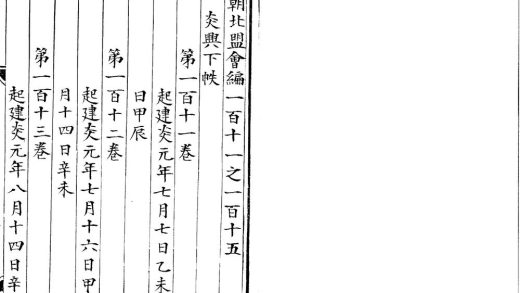 朝北盟會編一百十一之一百十五
炎興下帙
第一百十一卷
起建炎元年七月七日乙未
日甲辰
第一百十二卷
起建炎元年七月十六日甲
月十四日辛未
第一百十三卷
起建炎元年八月十四日辛